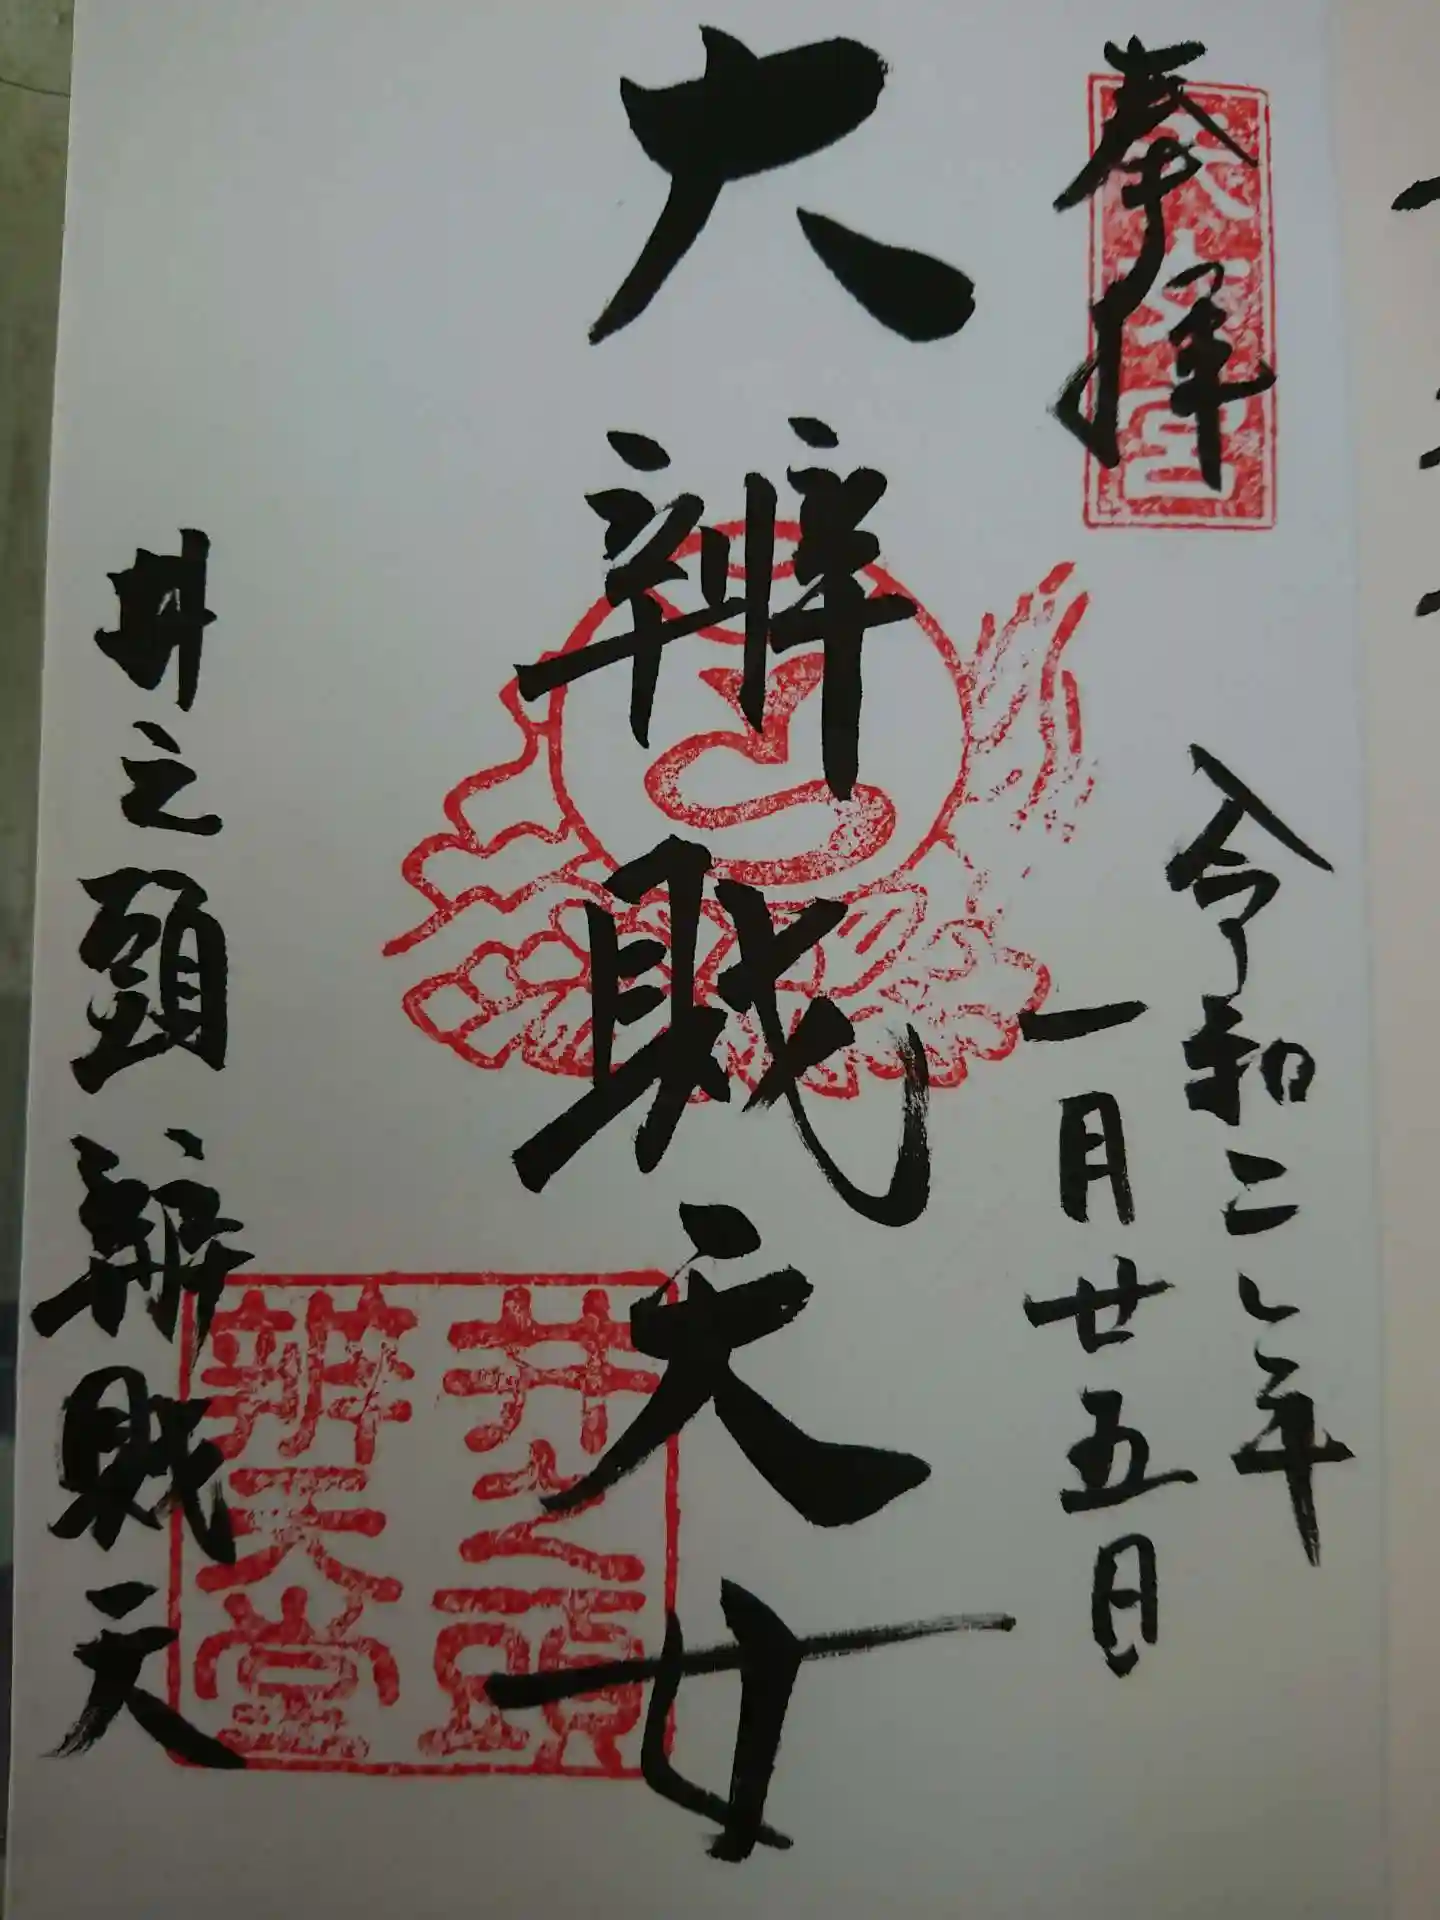 奉拝
天女宮
令和二年
一月廿五日
大辨財天女
井之頭
辨天堂
井之頭辨財天